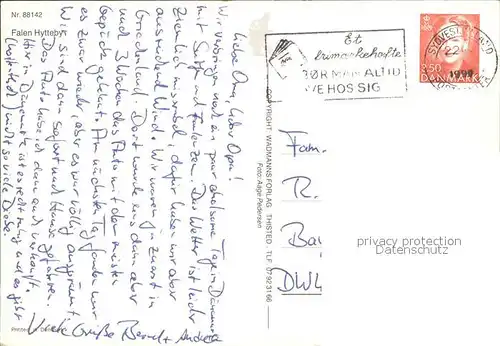 Nr. 88142
Falen Hytteby
Liebe Oma, lieber Opa!
Wir verbringen noch ein paar erholsame Tage in Dänemark
mit Sutje und Faulenzen. Das Wetter ist leider
ziemlich miserabel, dafür haben wir aber
ausreichend Wind. Wir waren zuerst in
Griechenland. Dort wurde uns dann aber
nach 3 Wochen das Auto mit dem meisten
Gepäck geklaut. Am nächsten Tag fanden wir
es zwar wieder, aber es war völlig ausgeräumt.
Wir sind dann sofort nach Hause gefahren.
Das Auto habe ich dann auch verkauft.
Hier in Dänemark ist es recht ruhig und es gibt
(hoffentlich) nicht so viele Diebe.
Viele Grüße Bernd + Andrea
COPYRIGHT: WADMANNS FORLAG, THISTED. TLF. 07923166
Foto: Aage Pedersen
Et
frimærkehæfte
BØR MAN ALTID
HAVE HOS SIG
22
1990
3.50
DANMARK
Fam.
R.
Bai
DW4
privacy protection
Datenschutz